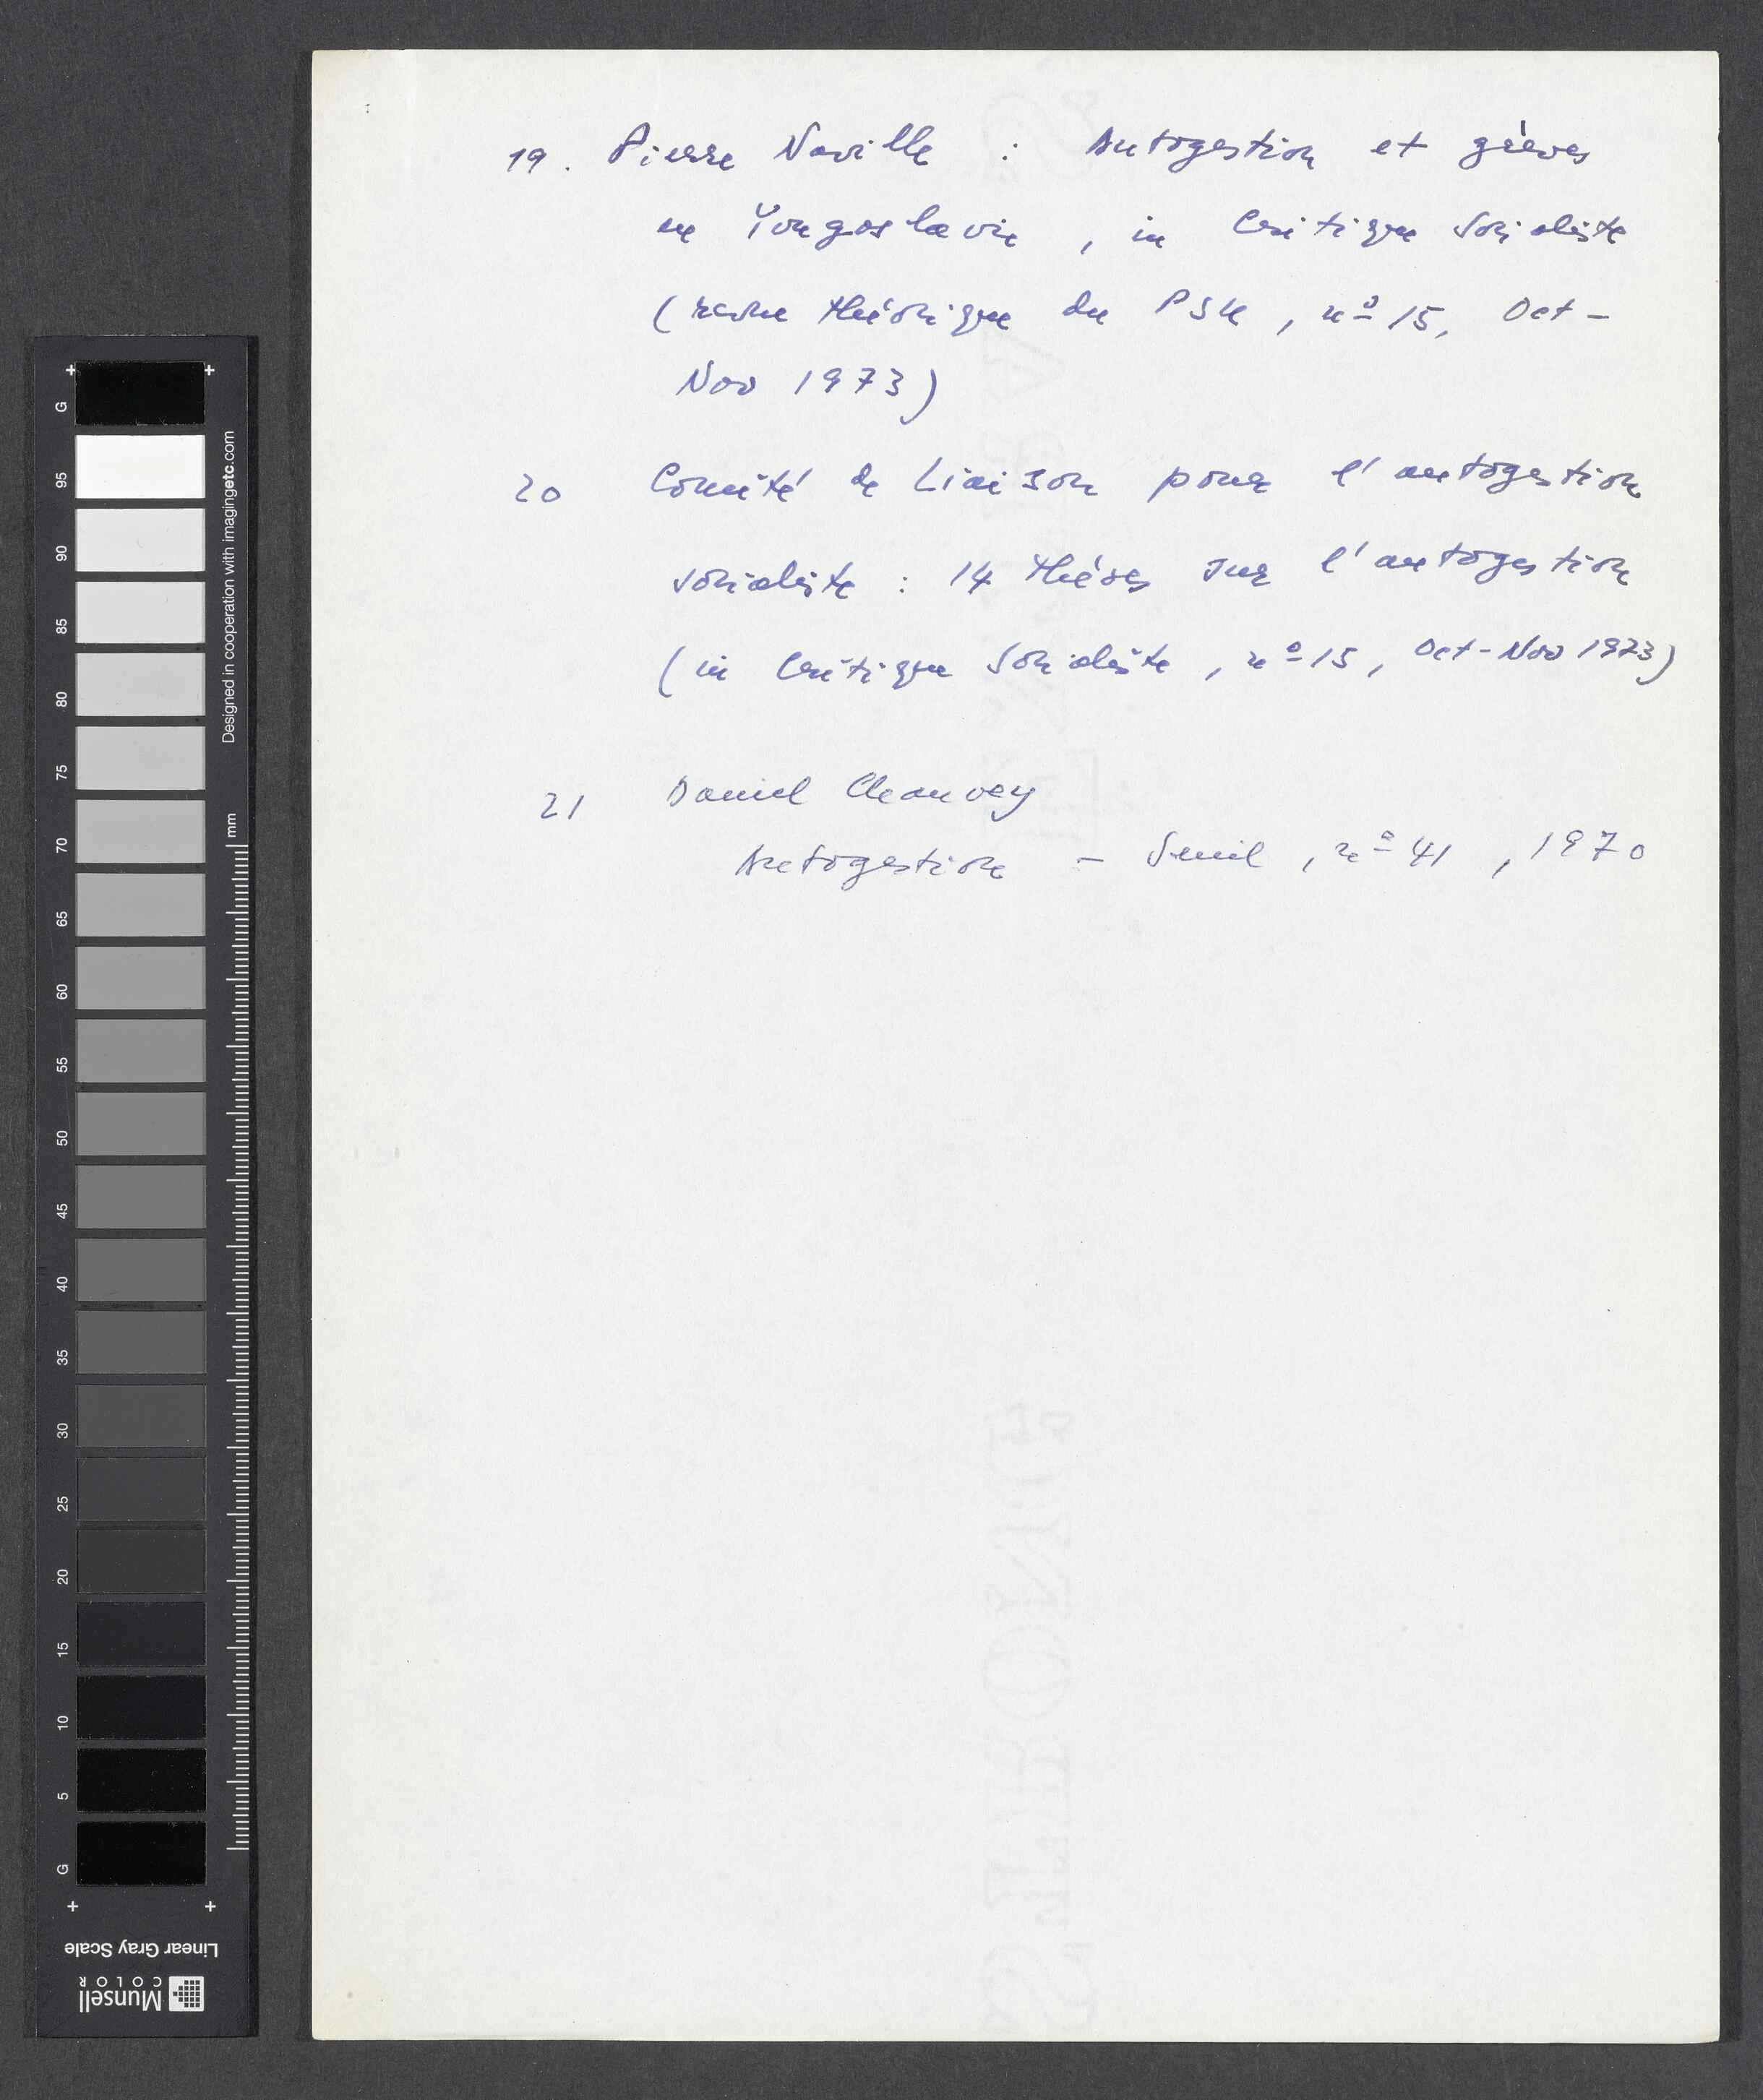 19. Pierre Naville : Autogestion et grèves
en Yougoslavie, in Critique Socialiste
(revue théorique du PSU, nº 15, Oct-
Nov 1973)
20 Comité de Liaison pour l'autogestion
socialiste : 14 théses sur l'autogestion
(in Critique Socialiste, nº 15, Oct-Nov 1973)
21 Daniel Chauvey
Autogestion - Seuil, nº 41, 1970
G
95
90
85
80
75
70
65
60
55
50
45
40
35
30
25
20
15
10
5
G
Designed in cooperation with imagingetc.com
mm
Linear Gray Scale
Munsell
COLOR